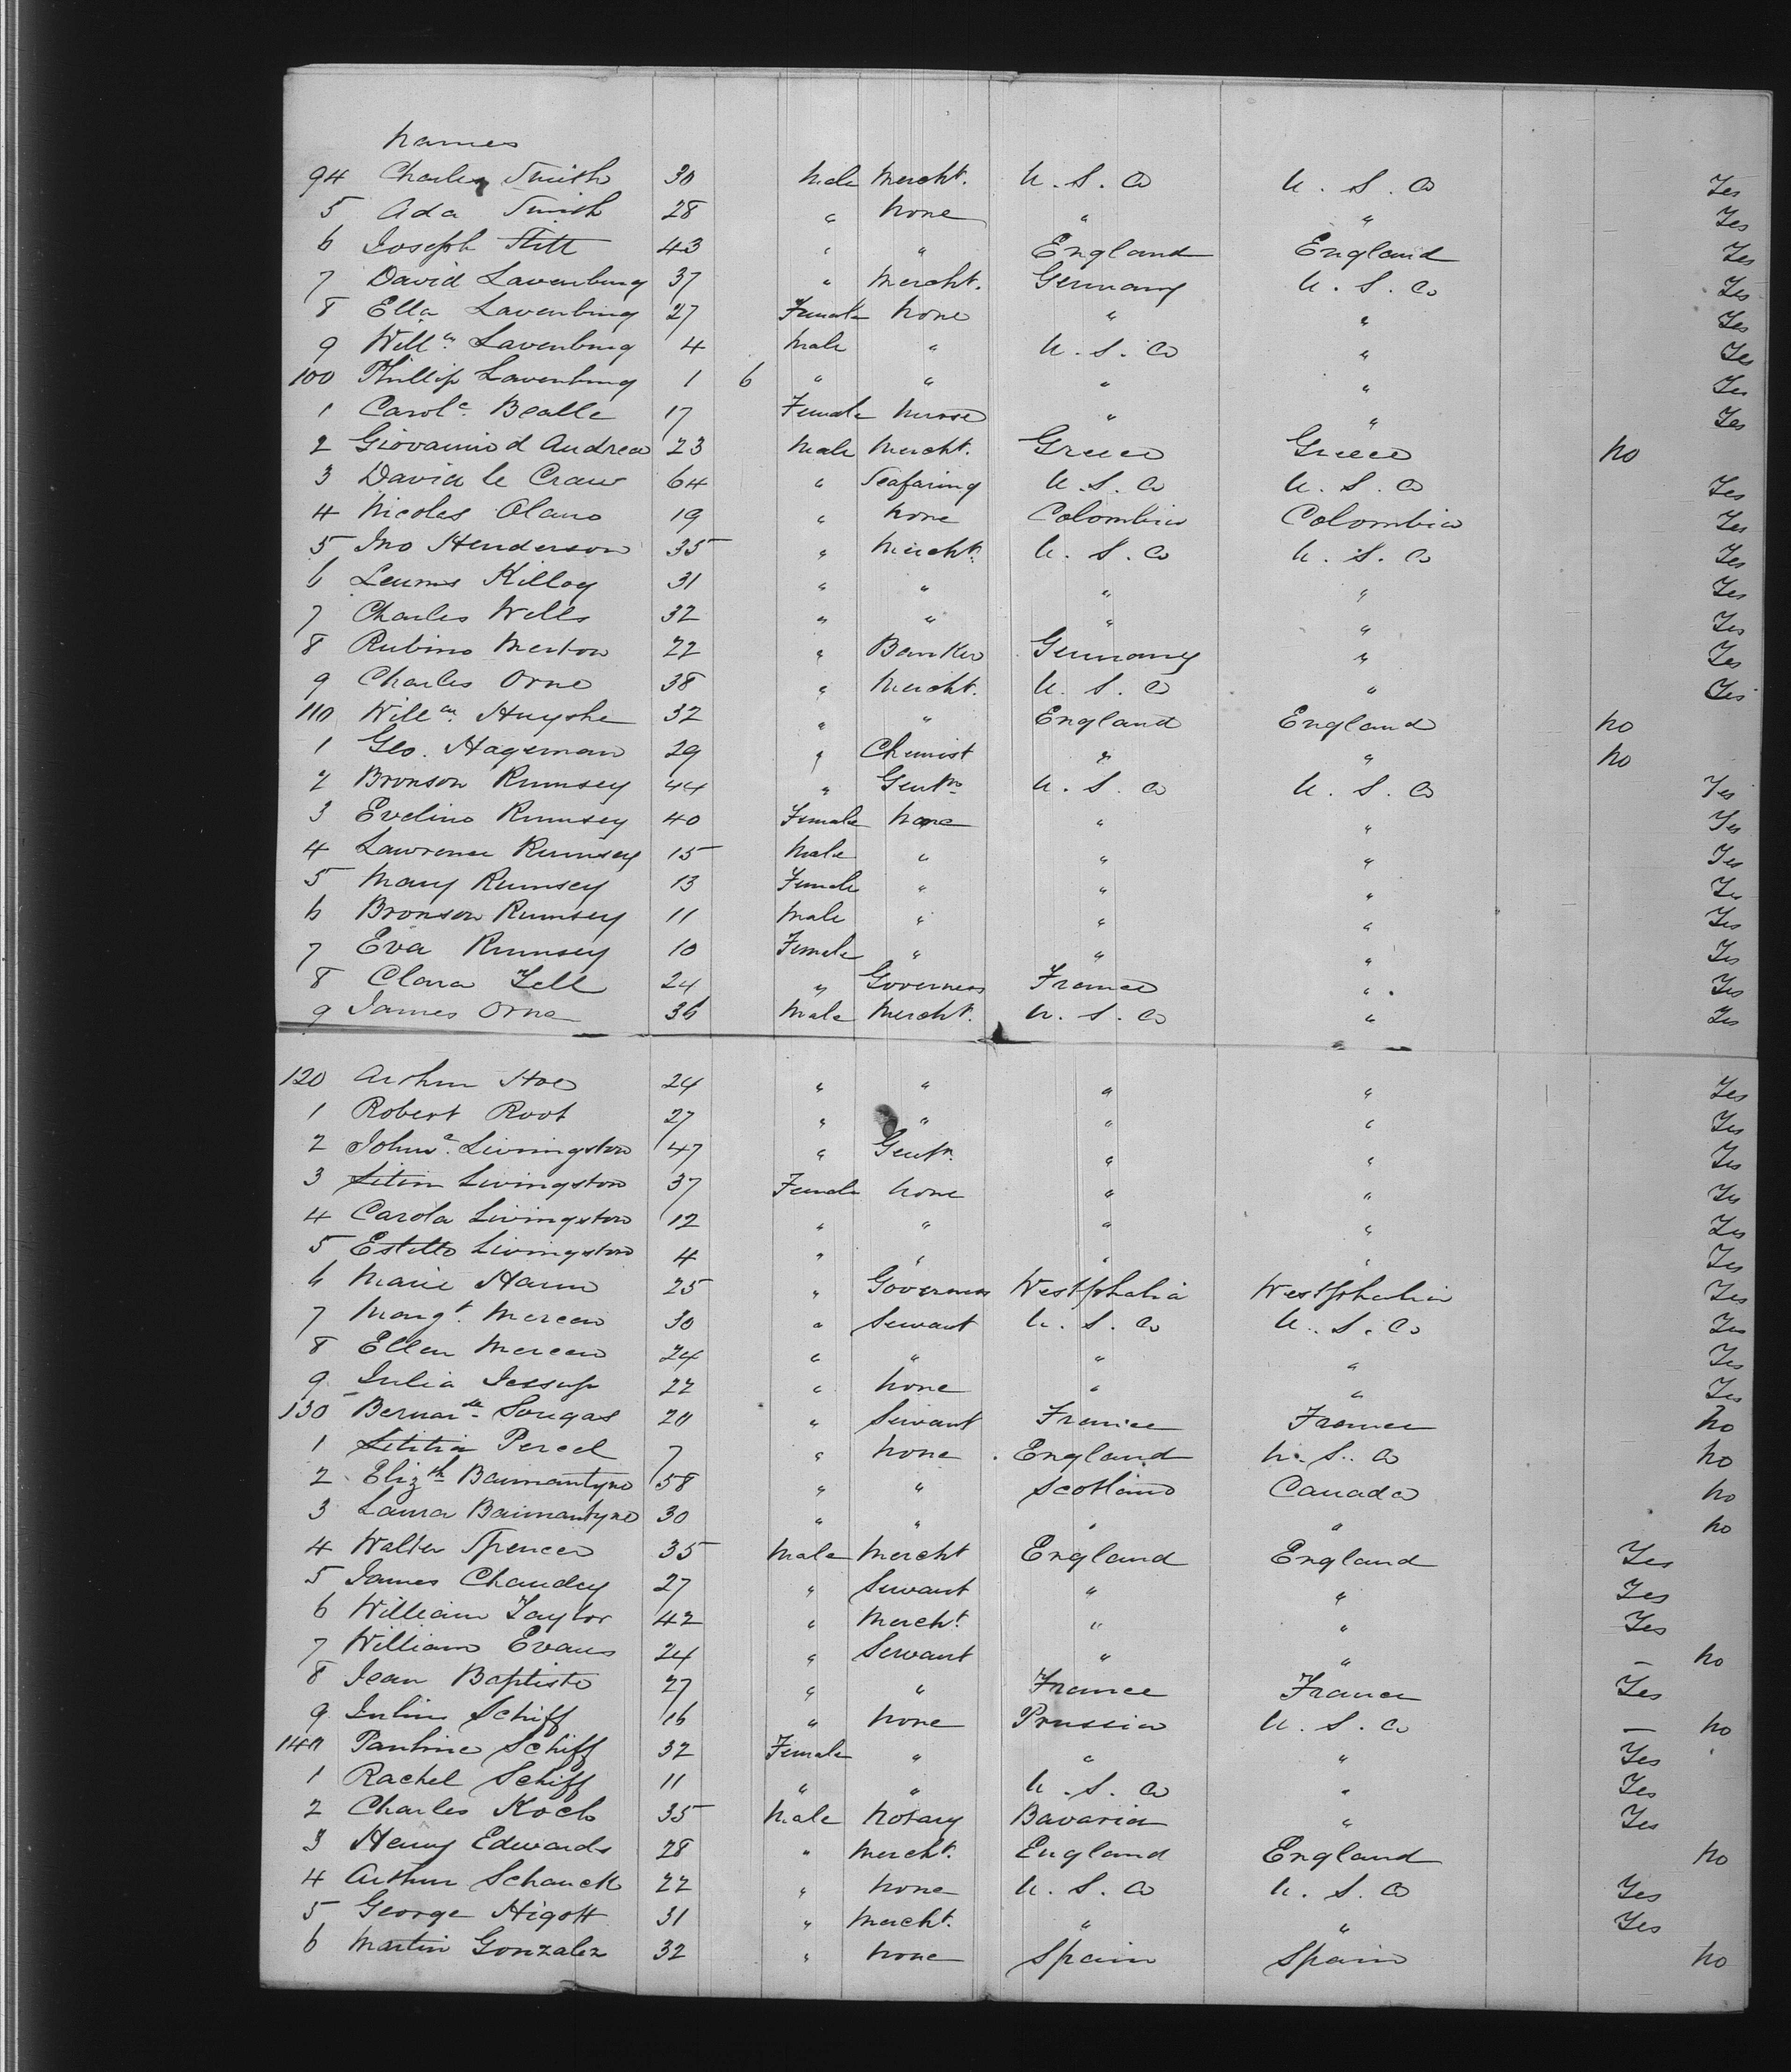 Names
94 Charles Smith 30 Male Mercht. U. S. A U. S. A Yes
5 Ada Smith 28 " None " " Yes
6 Joseph Stitt 43 " " England England Yes
7 David Lavenburg 37 " Mercht. Germany U. S. A Yes
8 Ella Lavenburg 27 Female None " " Yes
9 Willm. Lavenburg 4 Male " U. S. A " Yes
100 Phillip Lavenburg 1 6 " " " " Yes
1 Carole. Bealle 17 Female Nurse " " Yes
2 Giovanni d Andrea 23 Male Mercht. Greece Greece No
3 David le Craw 64 " Seafaring U. S. A U. S. A Yes
4 Nicolas Olano 19 " None Colombia Colombia Yes
5 Jno Henderson 35 " Mercht. U. S. A U. S. A Yes
6 Killoy 31 " " " " Yes
7 Charles Wells 32 " " " " Yes
8 Rubino Merton 22 " Banker Germany " Yes
9 Charles Orne 38 " Mercht. U. S. A " Yes
110 Willm. Huyshe 32 " " England England No
1 Geo. Hageman 29 " Chemist " " No
2 Bronson Rumsey 44 " Gentn. U. S. A U. S. A Yes
3 Evelino Rumsey 40 Female None " " Yes
4 Lawrence Rumsey 15 Male " " " Yes
5 Mary Rumsey 13 Female " " " Yes
6 Bronson Rumsey 11 Male " " " Yes
7 Eva Rumsey 10 Female " " " Yes
8 Clara Zell 24 " Governess France " Yes
9 James Orne 36 Male Mercht. U. S. A " Yes
120 Arthur Hoe 24 " " " " Yes
1 Robert Root 27 " " " " Yes
2 Johna. Livingston 47 " Gentn. " " Yes
3 Livingston 37 Female None " " Yes
4 Carola Livingston 12 " " " " Yes
5 Estelle Livingston 4 " " " " Yes
6 Marie Hamm 25 " Governess Westphalia Westphalia Yes
7 Margt. Mercen 30 " Servant U. S. A U. S. A Yes
8 Ellen Mercen 24 " " " " Yes
9 Julia Jessup 22 " None " " Yes
130 Bernarde. Sougas 20 " Servant France France No
1 Letitia Percel 7 " None England U. S. A No
2 Elizth Bannantyne 58 " " Scotland Canada No
3 Laura Bannantyne 30 " " " " No
4 Walter Spencer 35 Male Mercht England England Yes
5 James Chaudey 27 " Servant " " Yes
6 William Taylor 42 " Mercht. " " Yes
7 William Evans 24 " Servant " " – No
8 Jean Baptiste 27 " " France France Yes
9 Julius Schiff 16 " None Prussia U. S. A – No
140 Pauline Schiff 32 Female " " " Yes
1 Rachel Schiff 11 " " U. S. A " Yes
2 Charles Koch 35 Male Notary Bavaria " Yes
3 Henry Edwards 28 " Mercht. England England No
4 Arthur Schanck 22 " None U. S. A U. S. A Yes
5 George Higott 31 " Mercht. " " Yes
6 Martin Gonzalez 32 " None Spain Spain No